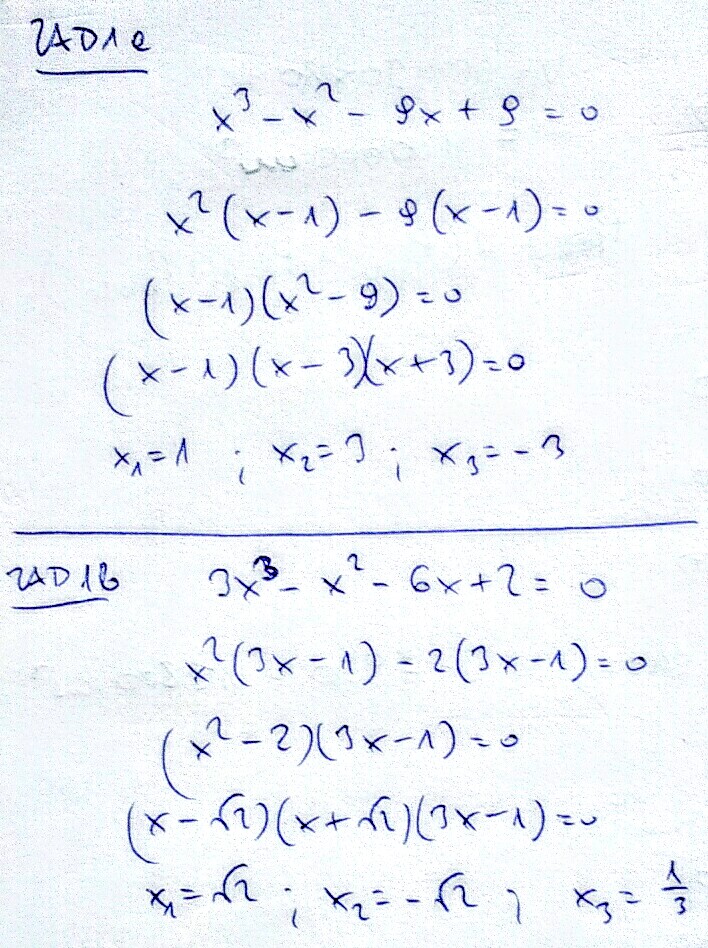 ZAD1a
x³ - x² - 9x + 9 = 0
x²(x-1) - 9(x-1) = 0
(x-1)(x²-9) = 0
(x-1)(x-3)(x+3) = 0
x₁ = 1 ; x₂ = 3 ; x₃ = -3
ZAD 1b 3x³ - x² - 6x + 2 = 0
x²(3x-1) - 2(3x-1) = 0
(x²-2)(3x-1) = 0
(x-√2)(x+√2)(3x-1) = 0
x₁ = √2 ; x₂ = -√2 ; x₃ = 1/3